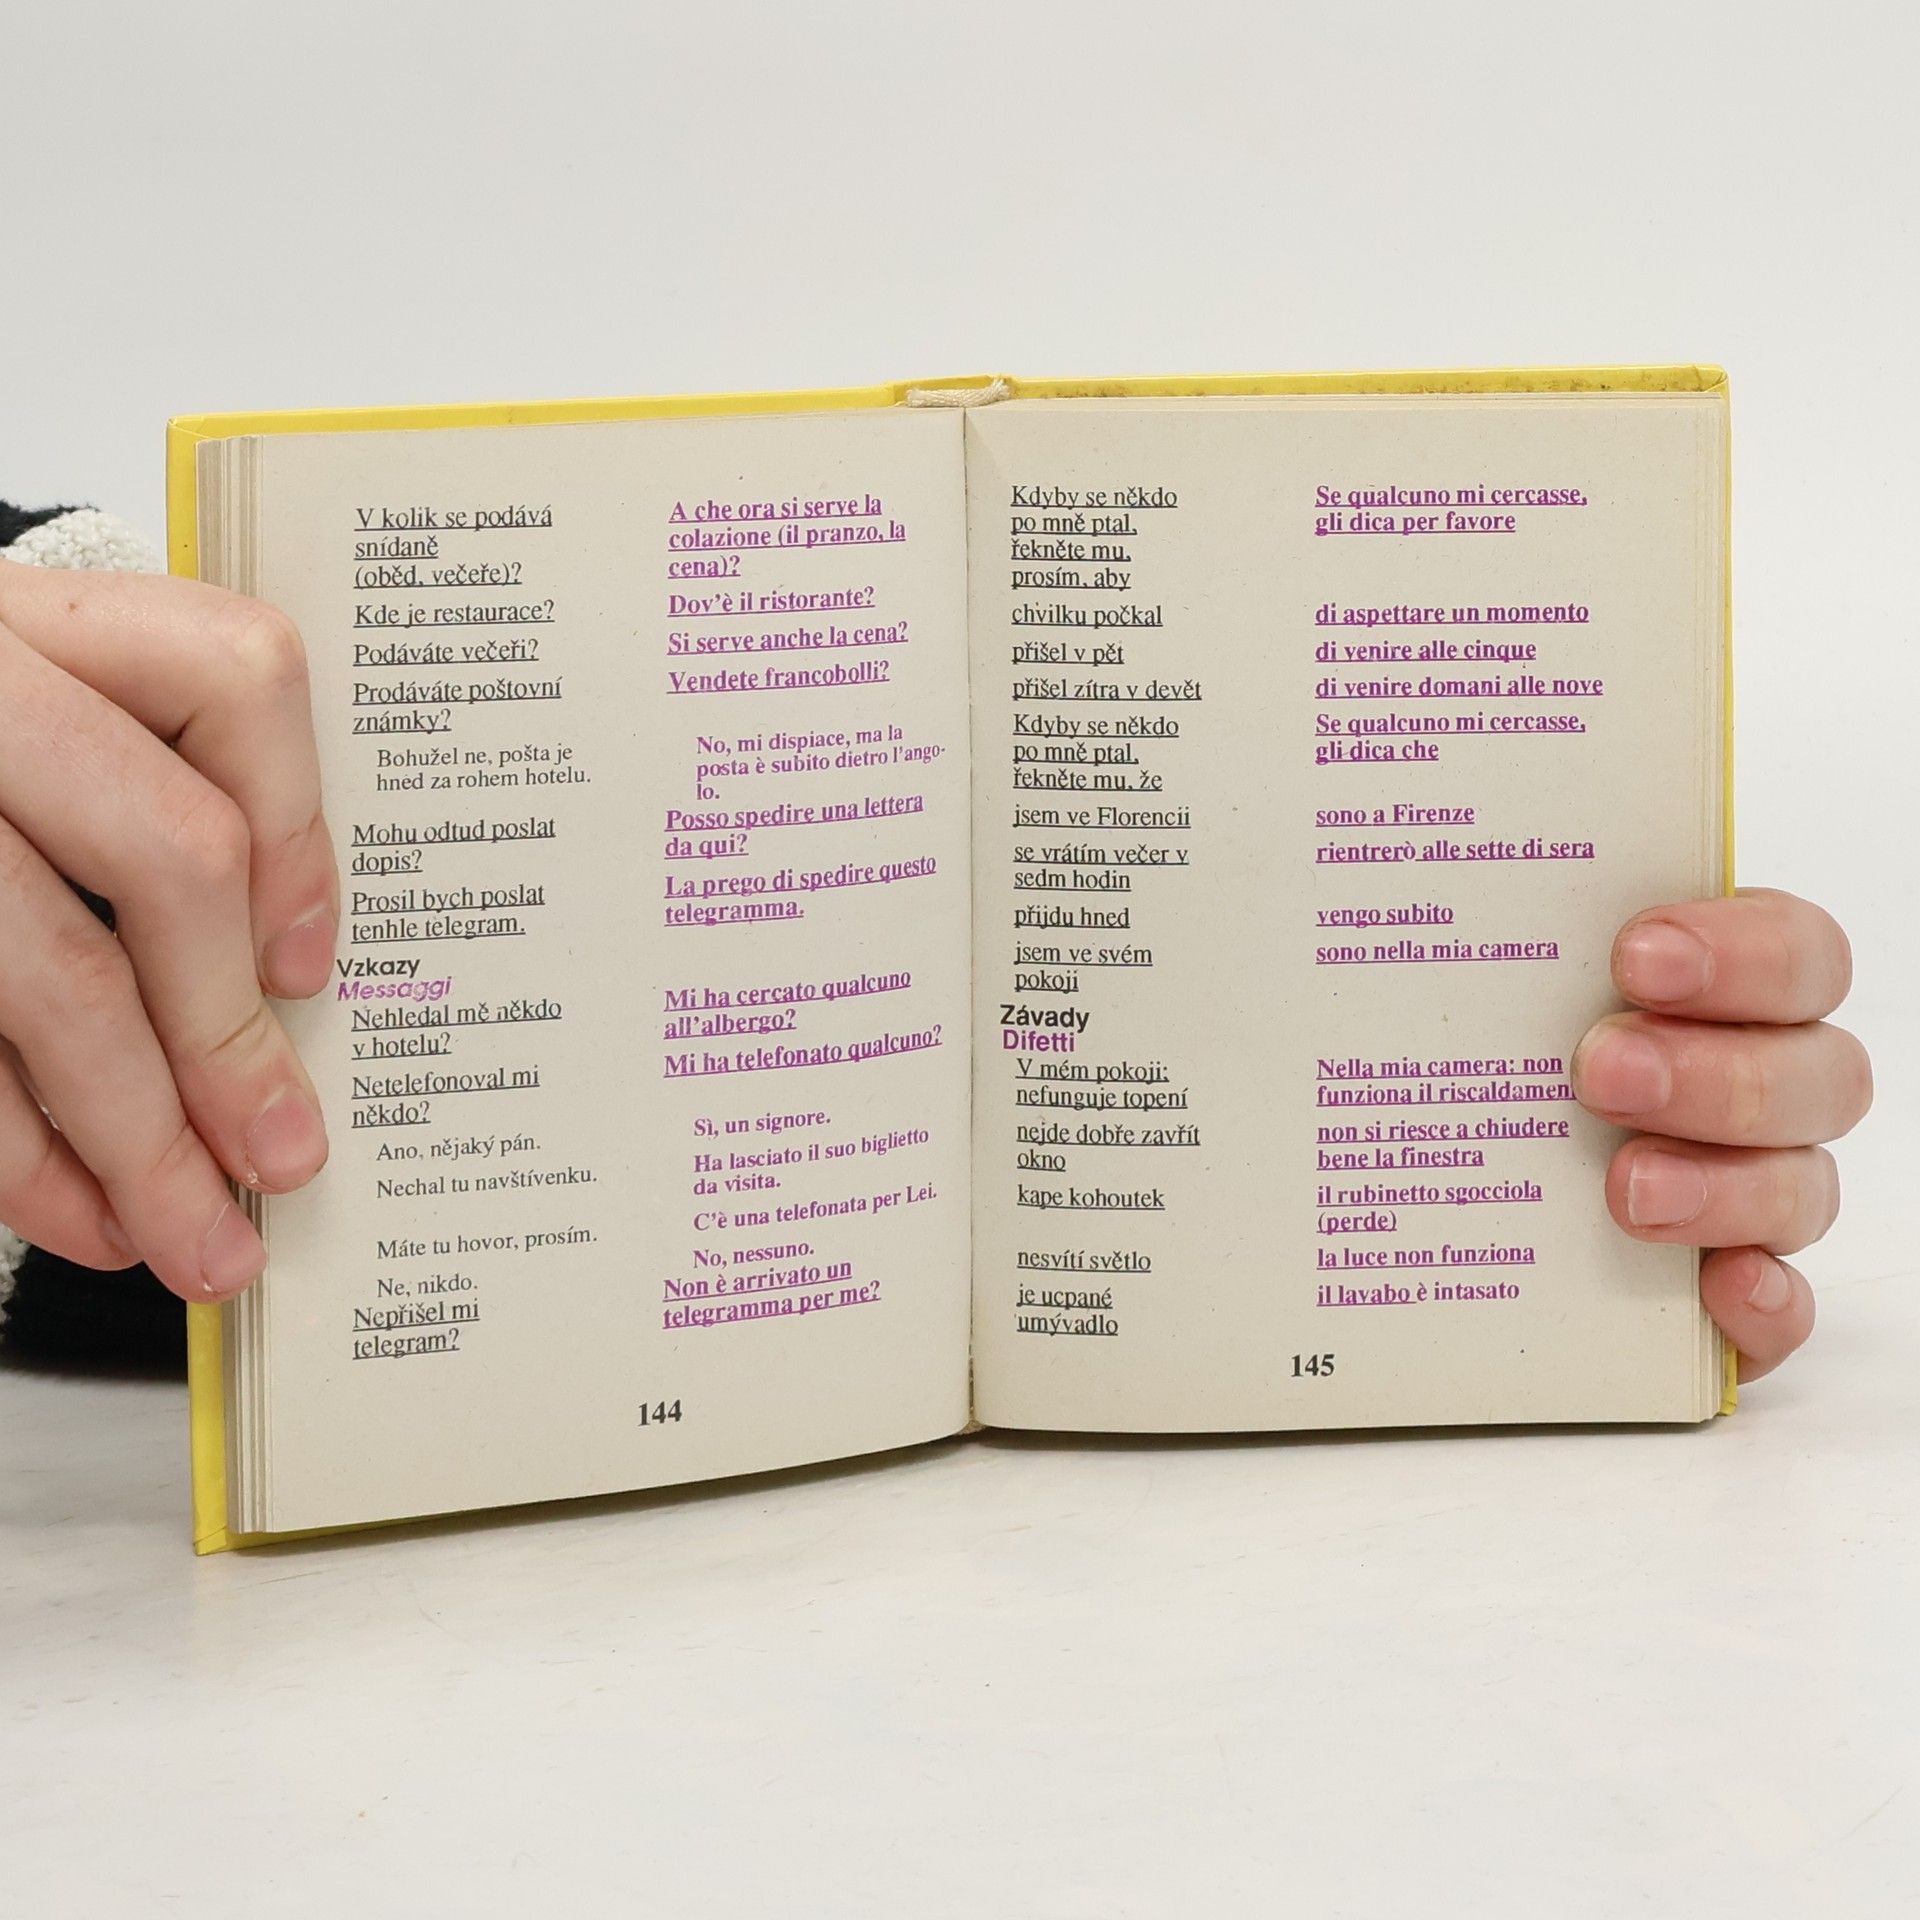 V kolik se podává
snídaně
(oběd, večeře)?
Kde je restaurace?
Podáváte večeři?
Prodáváte poštovní
známky?
Bohužel ne, pošta je
hned za rohem hotelu.
Mohu odtud poslat
dopis?
Prosil bych poslat
tenhle telegram.
Vzkazy
Messaggi
Nehledal mě někdo
v hotelu?
Netelefonoval mi
někdo?
Ano, nějaký pán.
Nechal tu navštívenku.
Máte tu hovor, prosím.
Ne, nikdo.
Nepřišel mi
telegram?
A che ora si serve la
colazione (il pranzo, la
cena)?
Dov'è il ristorante?
Si serve anche la cena?
Vendete francobolli?
No, mi dispiace, ma la
posta è subito dietro l'ango-
lo.
Posso spedire una lettera
da qui?
La prego di spedire questo
telegramma.
Mi ha cercato qualcuno
all'albergo?
Mi ha telefonato qualcuno?
Sì, un signore.
Ha lasciato il suo biglietto
da visita.
C'è una telefonata per Lei.
No, nessuno.
Non è arrivato un
telegramma per me?
144
Kdyby se někdo
po mně ptal,
řekněte mu,
prosím, aby
chvilku počkal
přišel v pět
přišel zítra v devět
Kdyby se někdo
po mně ptal,
řekněte mu, že
jsem ve Florencii
se vrátím večer v
sedm hodin
přijdu hned
jsem ve svém
pokoji
Závady
Difetti
V mém pokoji:
nefunguje topení
nejde dobře zavřít
okno
kape kohoutek
nesvítí světlo
je ucpané
umývadlo
Se qualcuno mi cercasse,
gli dica per favore
di aspettare un momento
di venire alle cinque
di venire domani alle nove
Se qualcuno mi cercasse,
gli dica che
sono a Firenze
rientrerò alle sette di sera
vengo subito
sono nella mia camera
Nella mia camera: non
funziona il riscaldamen
non si riesce a chiudere
bene la finestra
il rubinetto sgocciola
(perde)
la luce non funziona
il lavabo è intasato
145